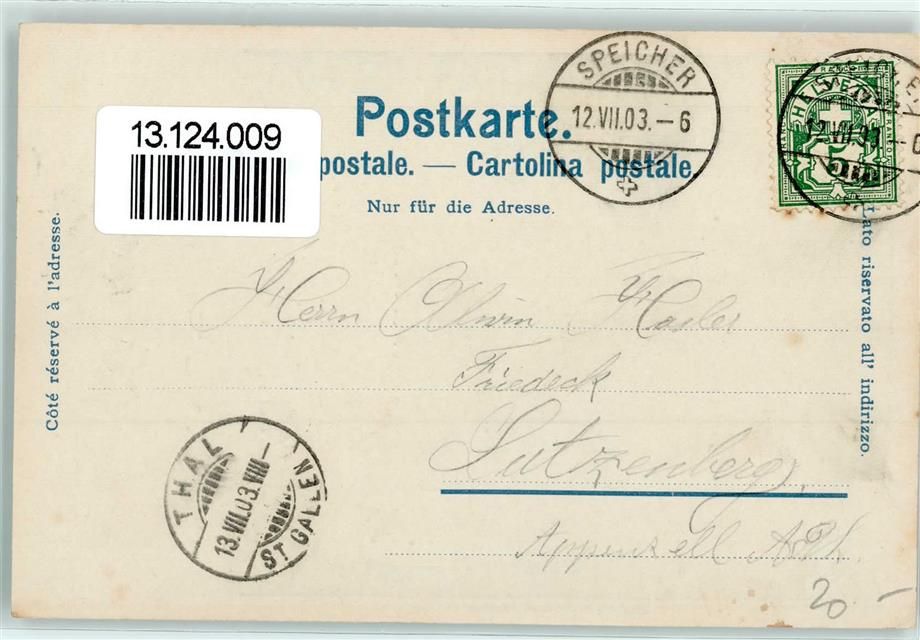 13.124.009
Postkarte.
postale. — Cartolina postale.
Nur für die Adresse.
SPEICHER
12.VII.03.-6
12.VII.03.
5
Côté réservé à l'adresse.
Lato riservato all' indirizzo.
Herrn Alwin Hosler
Friedeck
Lutzenberg,
Appenzell A.Rh.
THAL
13.VII.03.VIII-
ST. GALLEN
20 -